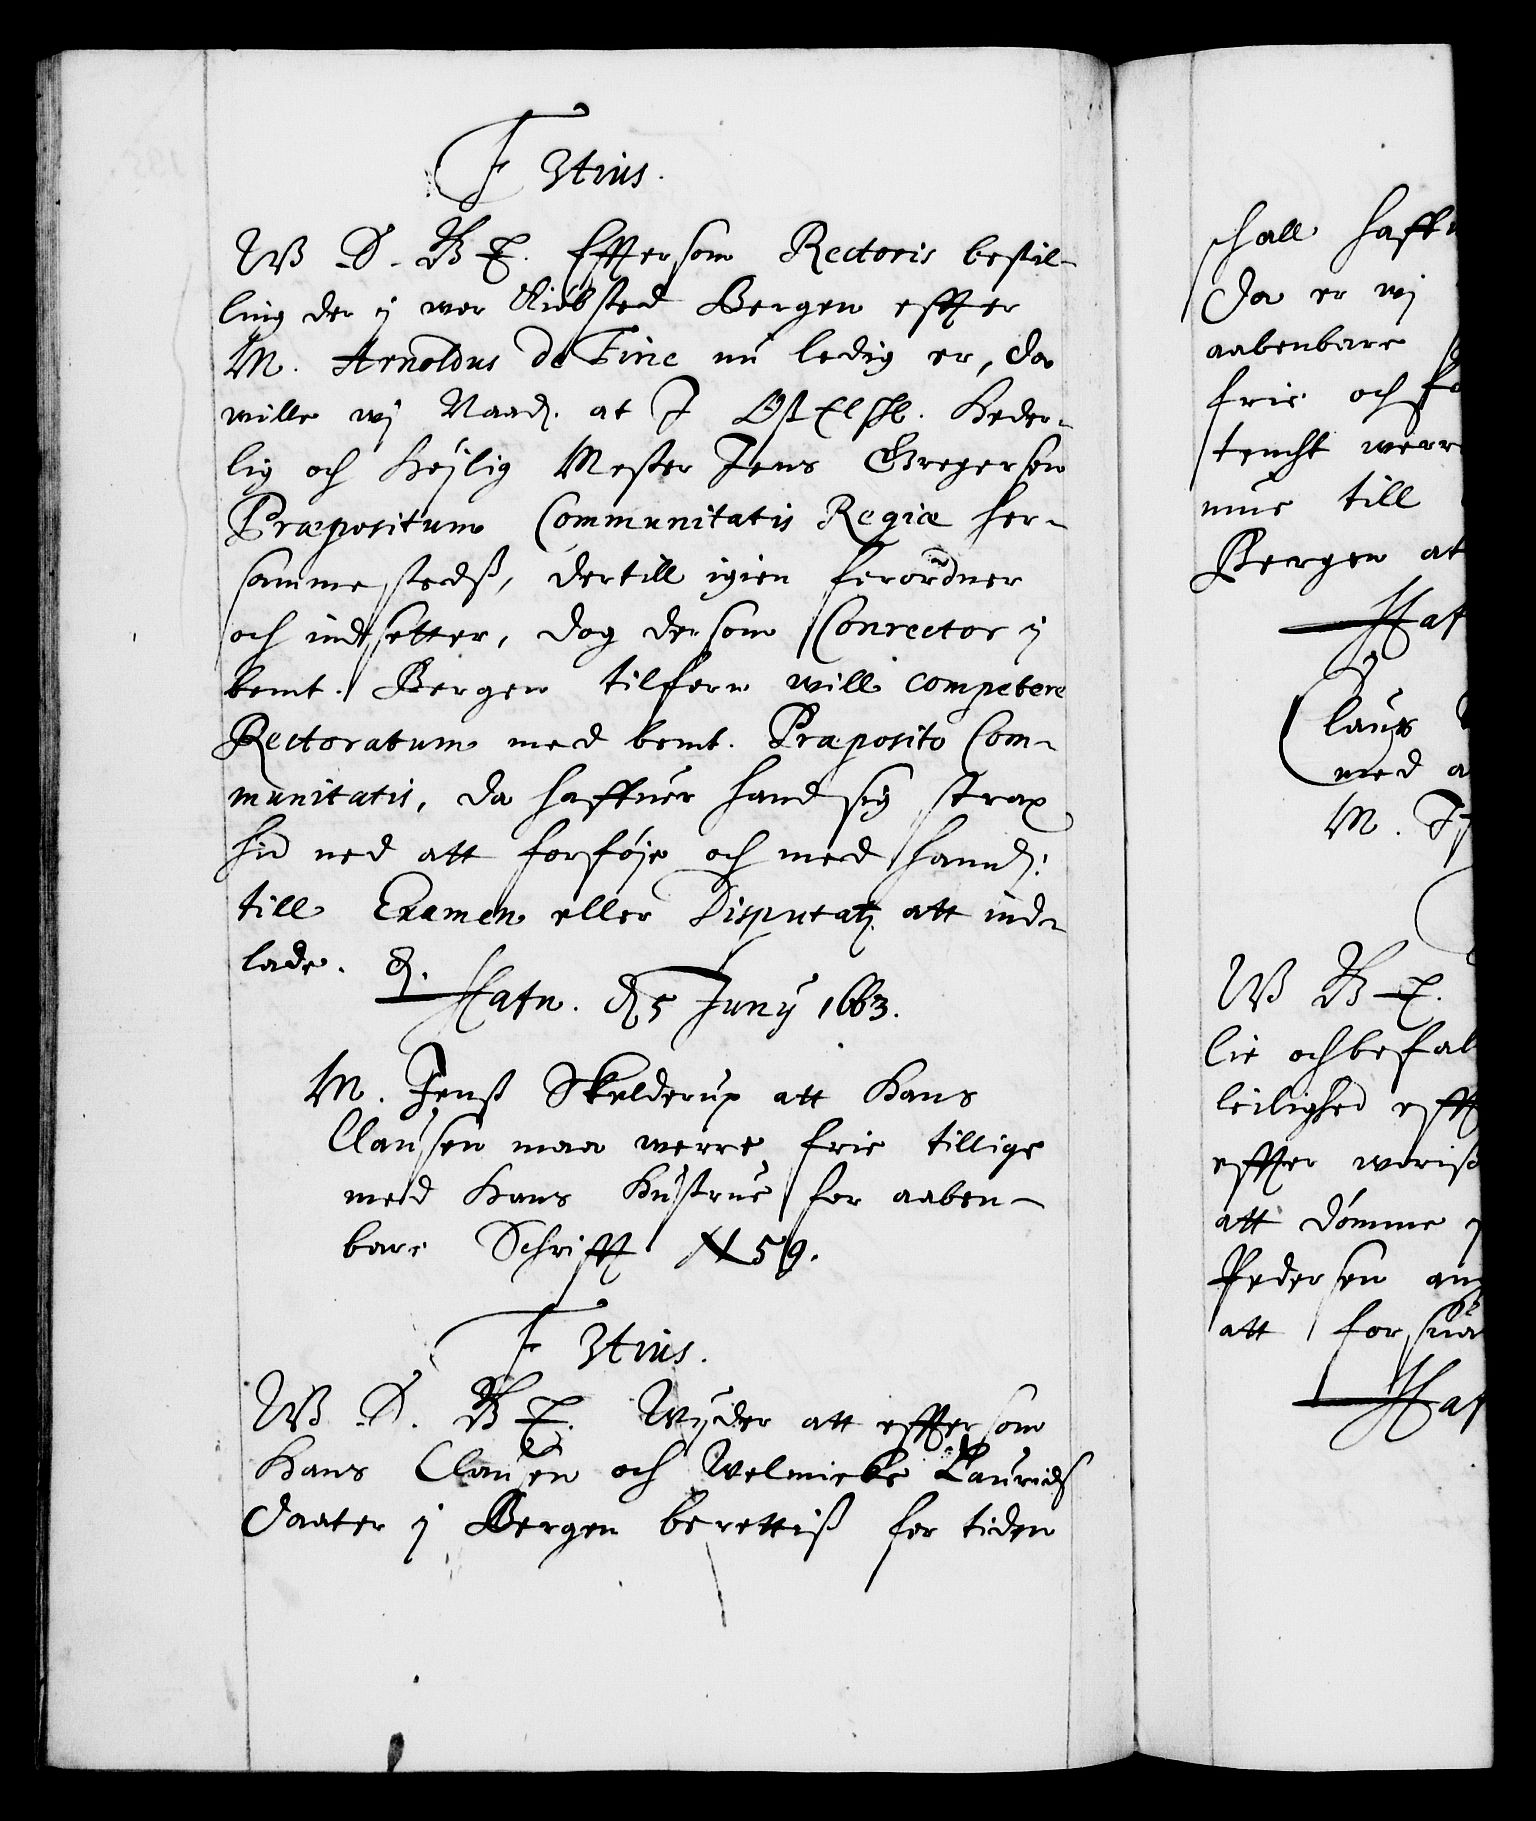 F 3tius.
W S. G T. Efftersom Rectoris bestil-
ling der i wor Kiøbsted Bergen effter
M. Arnoldus de Fine nu ledig er, da
wille wj Naadj. at I Oß Elskl. Heder-
lig och Høylig Mester Jens Gregersen
Præpositum Communitatis Regiæ her-
sammestedß, dertill igien forordner
och indsetter, dog dersom Conrector i
bemt. Bergen tilforn will competere
Rectoratum med bemt. Præposito Com-
munitatis, da haffuer hand sig strax
hid ned att forføje och med hannd:
till Examen eller Disputatz att ind-
lade. &.
Hafn. d 5 Junÿ 1663.
M. Jenß Skelderup att Hans
Clausen maa werre frie tillige
med Hans Hustrue for aaben-
bare Schrifft N 59.
F 3tius.
W. S. G T. Wijder att efftersom
Hans Clausen och Welmicke Laurids
Daater i Bergen berettiß for tiden
schall haff
da er wj
aabenbare
frie och fo
tencht werr
mue till
Bergen at
Haf
Claus
med a
M. J
W G T.
lie och befal
leilighed efft
effter woriß
att dømme i
Pedersen an
att forsua
Haf